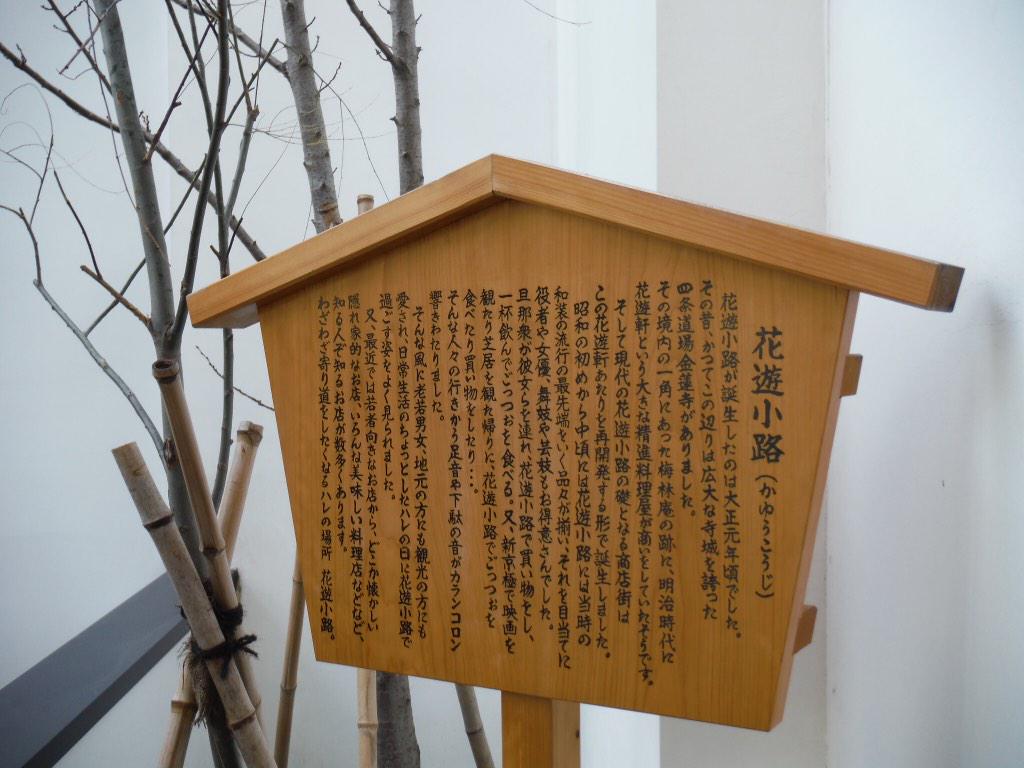 花遊小路（かゆうこうじ）
花遊小路が誕生したのは大正元年頃でした。
その昔、かつてこの辺りは広大な寺域を誇った
四条道場金蓮寺がありました。
その境内の一角にあった梅林庵の跡に、明治時代に
花遊軒という大きな精進料理屋が商いをしていたそうです。
そして現代の花遊小路の礎となる商店街は
この花遊軒あたりを再開発する形で誕生しました。
昭和の初めから中頃には花遊小路には当時の
和装の流行の最先端をいく品々が揃い、それを目当てに
役者や女優、舞妓や芸妓もお得意さんでした。
旦那衆が彼女らを連れ、花遊小路で買い物をし、
一杯飲んでごっつおを食べる。又、新京極で映画を
観たり芝居を観た帰りに、花遊小路でごっつおを
食べたり買い物をしたり・・・。
そんな人々の行きかう足音や下駄の音がカランコロン
響きわたりました。
そんな風に老若男女、地元の方にも観光の方にも
愛され、日常生活のちょっとしたハレの日に花遊小路で
過ごす姿をよく見られました。
又、最近では若者向きなお店から、どこか懐かしい
隠れ家的なお店、いろんな美味しい料理店などなど、
知る人ぞ知るお店が数多くあります。
わざわざ寄り道をしたくなるハレの場所　花遊小路。